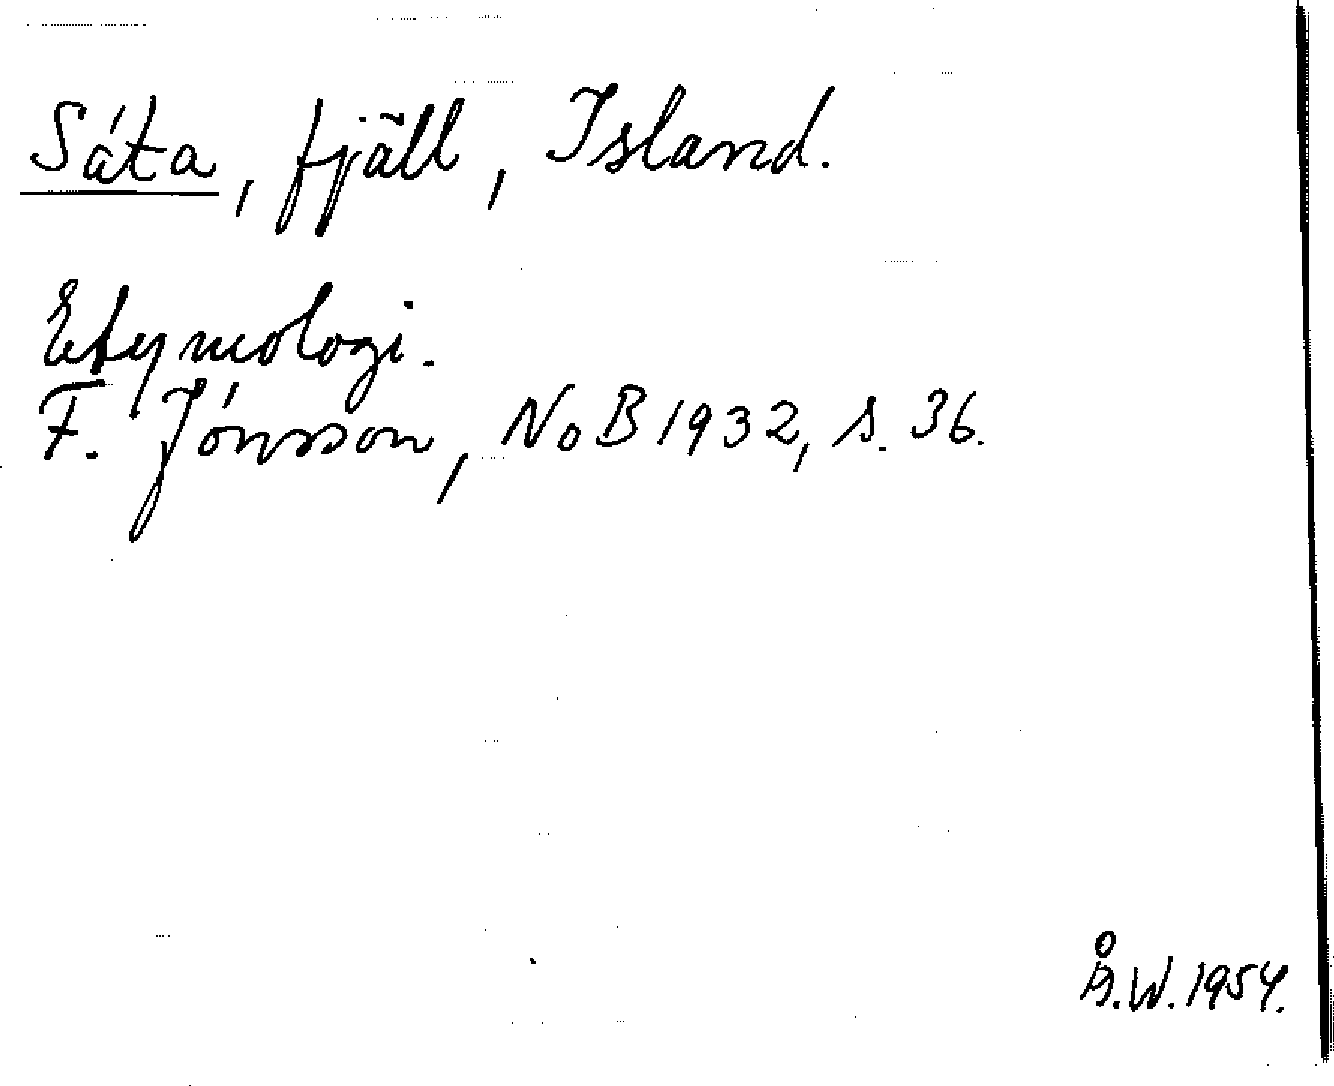 Sáta, fjäll, Island.
Etymologi.
F. Jónsson, NoB 1932, s. 36.
Å.W. 1954.